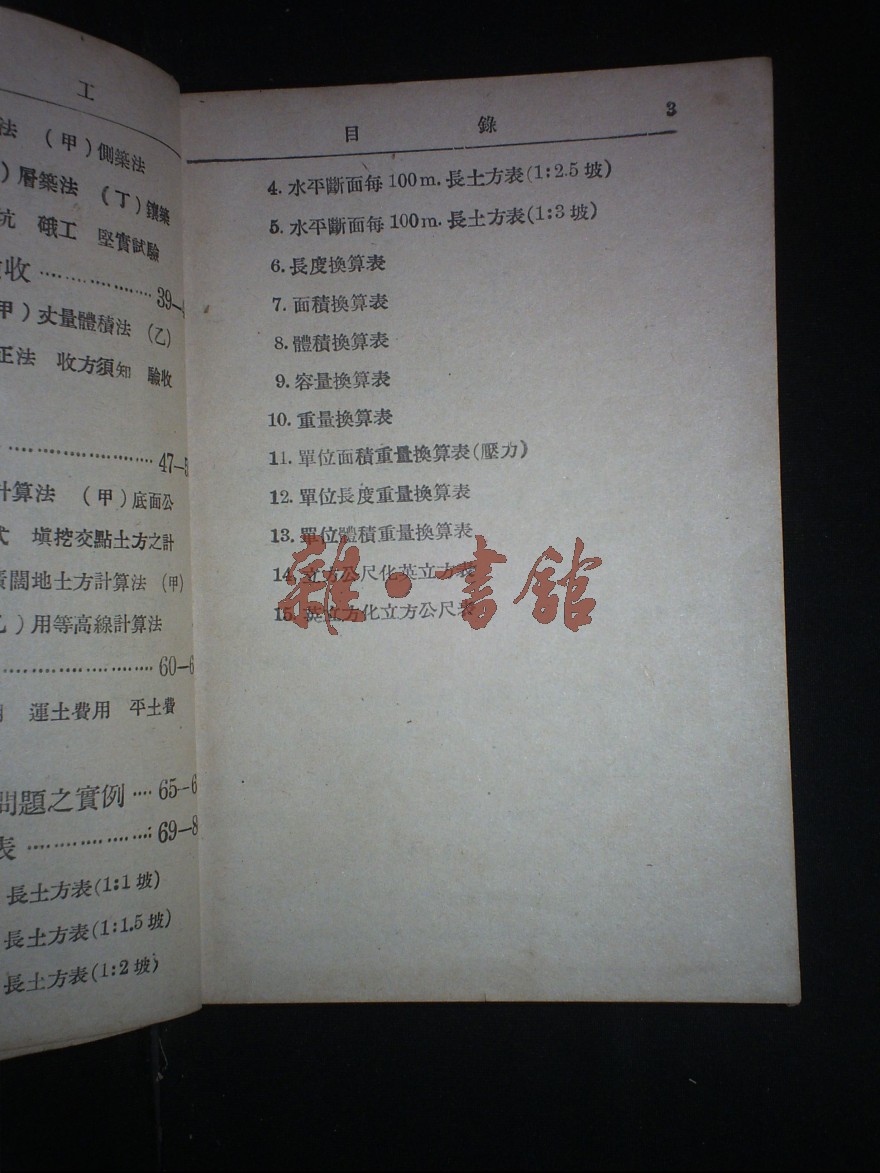 工
法 (甲)側築法
)層築法 (丁)鑲築
坑 硪工 堅實試驗
收 ·················· 39—4
甲)丈量體積法 (乙)
正法 收方須知 驗收
·························· 47—5
計算法 (甲)底面公
式 塡挖交點土方之計
廣闊地土方計算法 (甲)
乙)用等高線計算法
·························· 60—6
運土費用 平土費
問題之實例 ···· 65--6
表 ··················: 69—8
長土方表(1:1坡)
長土方表(1:1.5坡)
長土方表(1:2坡)
目 錄 3
4. 水平斷面每100m.長土方表(1:2.5坡)
5. 水平斷面每100m.長土方表(1:3坡)
6. 長度換算表
7. 面積換算表
8. 體積換算表
9. 容量換算表
10. 重量換算表
11. 單位面積重量換算表(壓力)
12. 單位長度重量換算表
13. 單位體積重量換算表
14. 立方公尺化英立方表
15. 英立方化立方公尺表
雜·書館